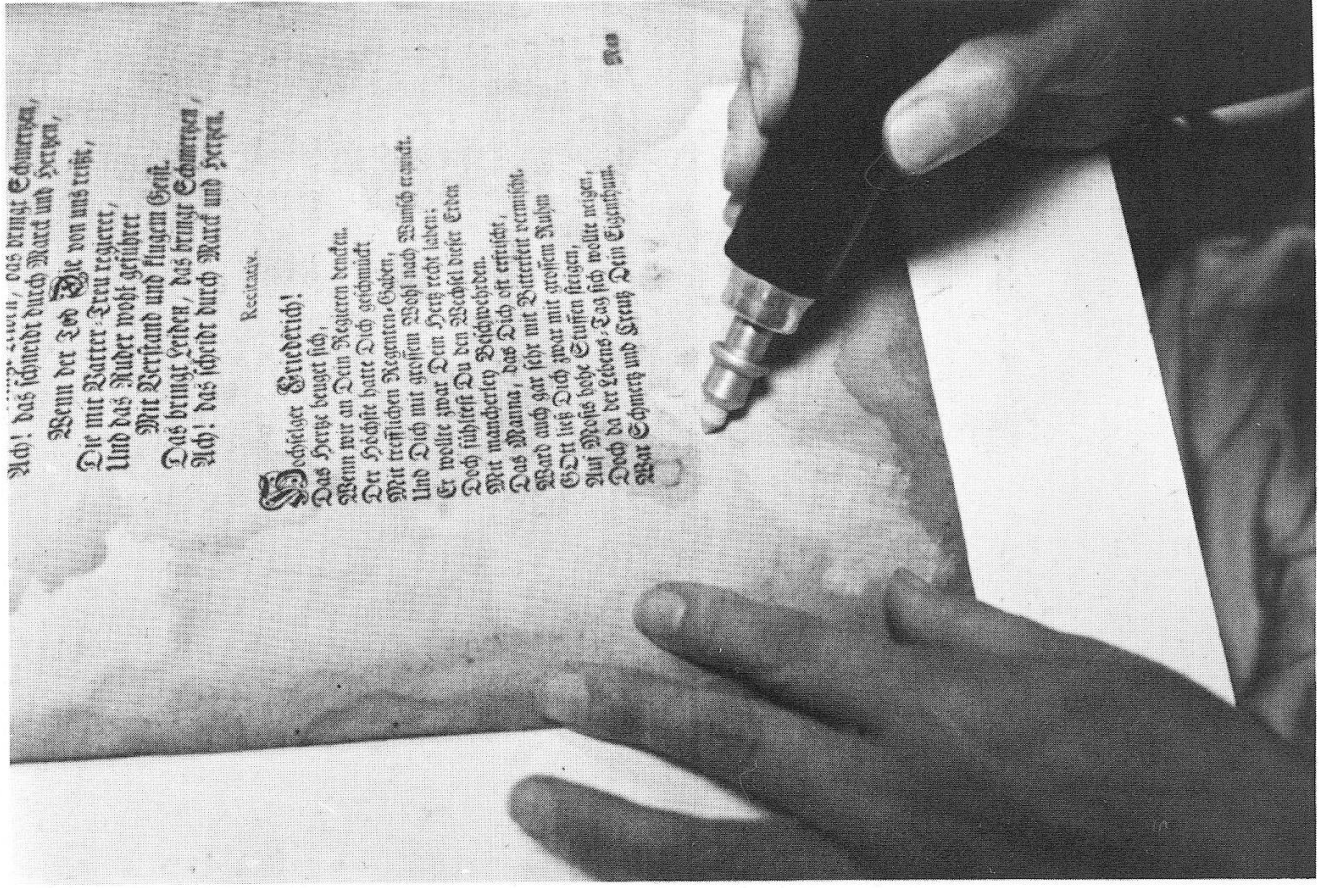 das bringt Schmertzen,
Ach! das schneidt durch Marck und Hertzen,
Wenn der Tod Die von uns reißt,
Die mit Vatter-Treu regieret,
Und das Ruder wohl geführet
Mit Verstand und klugem Geist.
Das bringt Leiden, das bringt Schmertzen,
Ach! das scheidt durch Marck und Hertzen.
Recitativ.
Hochseliger Friederich!
Das Hertze beuget sich,
Wenn wir an Dein Regieren dencken.
Der Höchste hatte Dich geschmückt
Mit trefflichen Regenten-Gaben,
Und Dich mit grossem Wohl nach Wunsch erquickt.
Er wollte zwar Dein Hertz recht laben;
Doch fühltest Du den Wechsel dieser Erden
Mit mancherley Beschwehrden.
Das Manna, das Dich oft erfrischt,
Ward auch gar sehr mit Bitterkeit vermischt.
GOtt ließ Dich zwar mit grossem Ruhm
Auf Mosis hohe Stuffen steigen,
Doch da der Lebens-Tag sich wollte neigen,
War Schmertz und Creutz Dein Eigenthum.